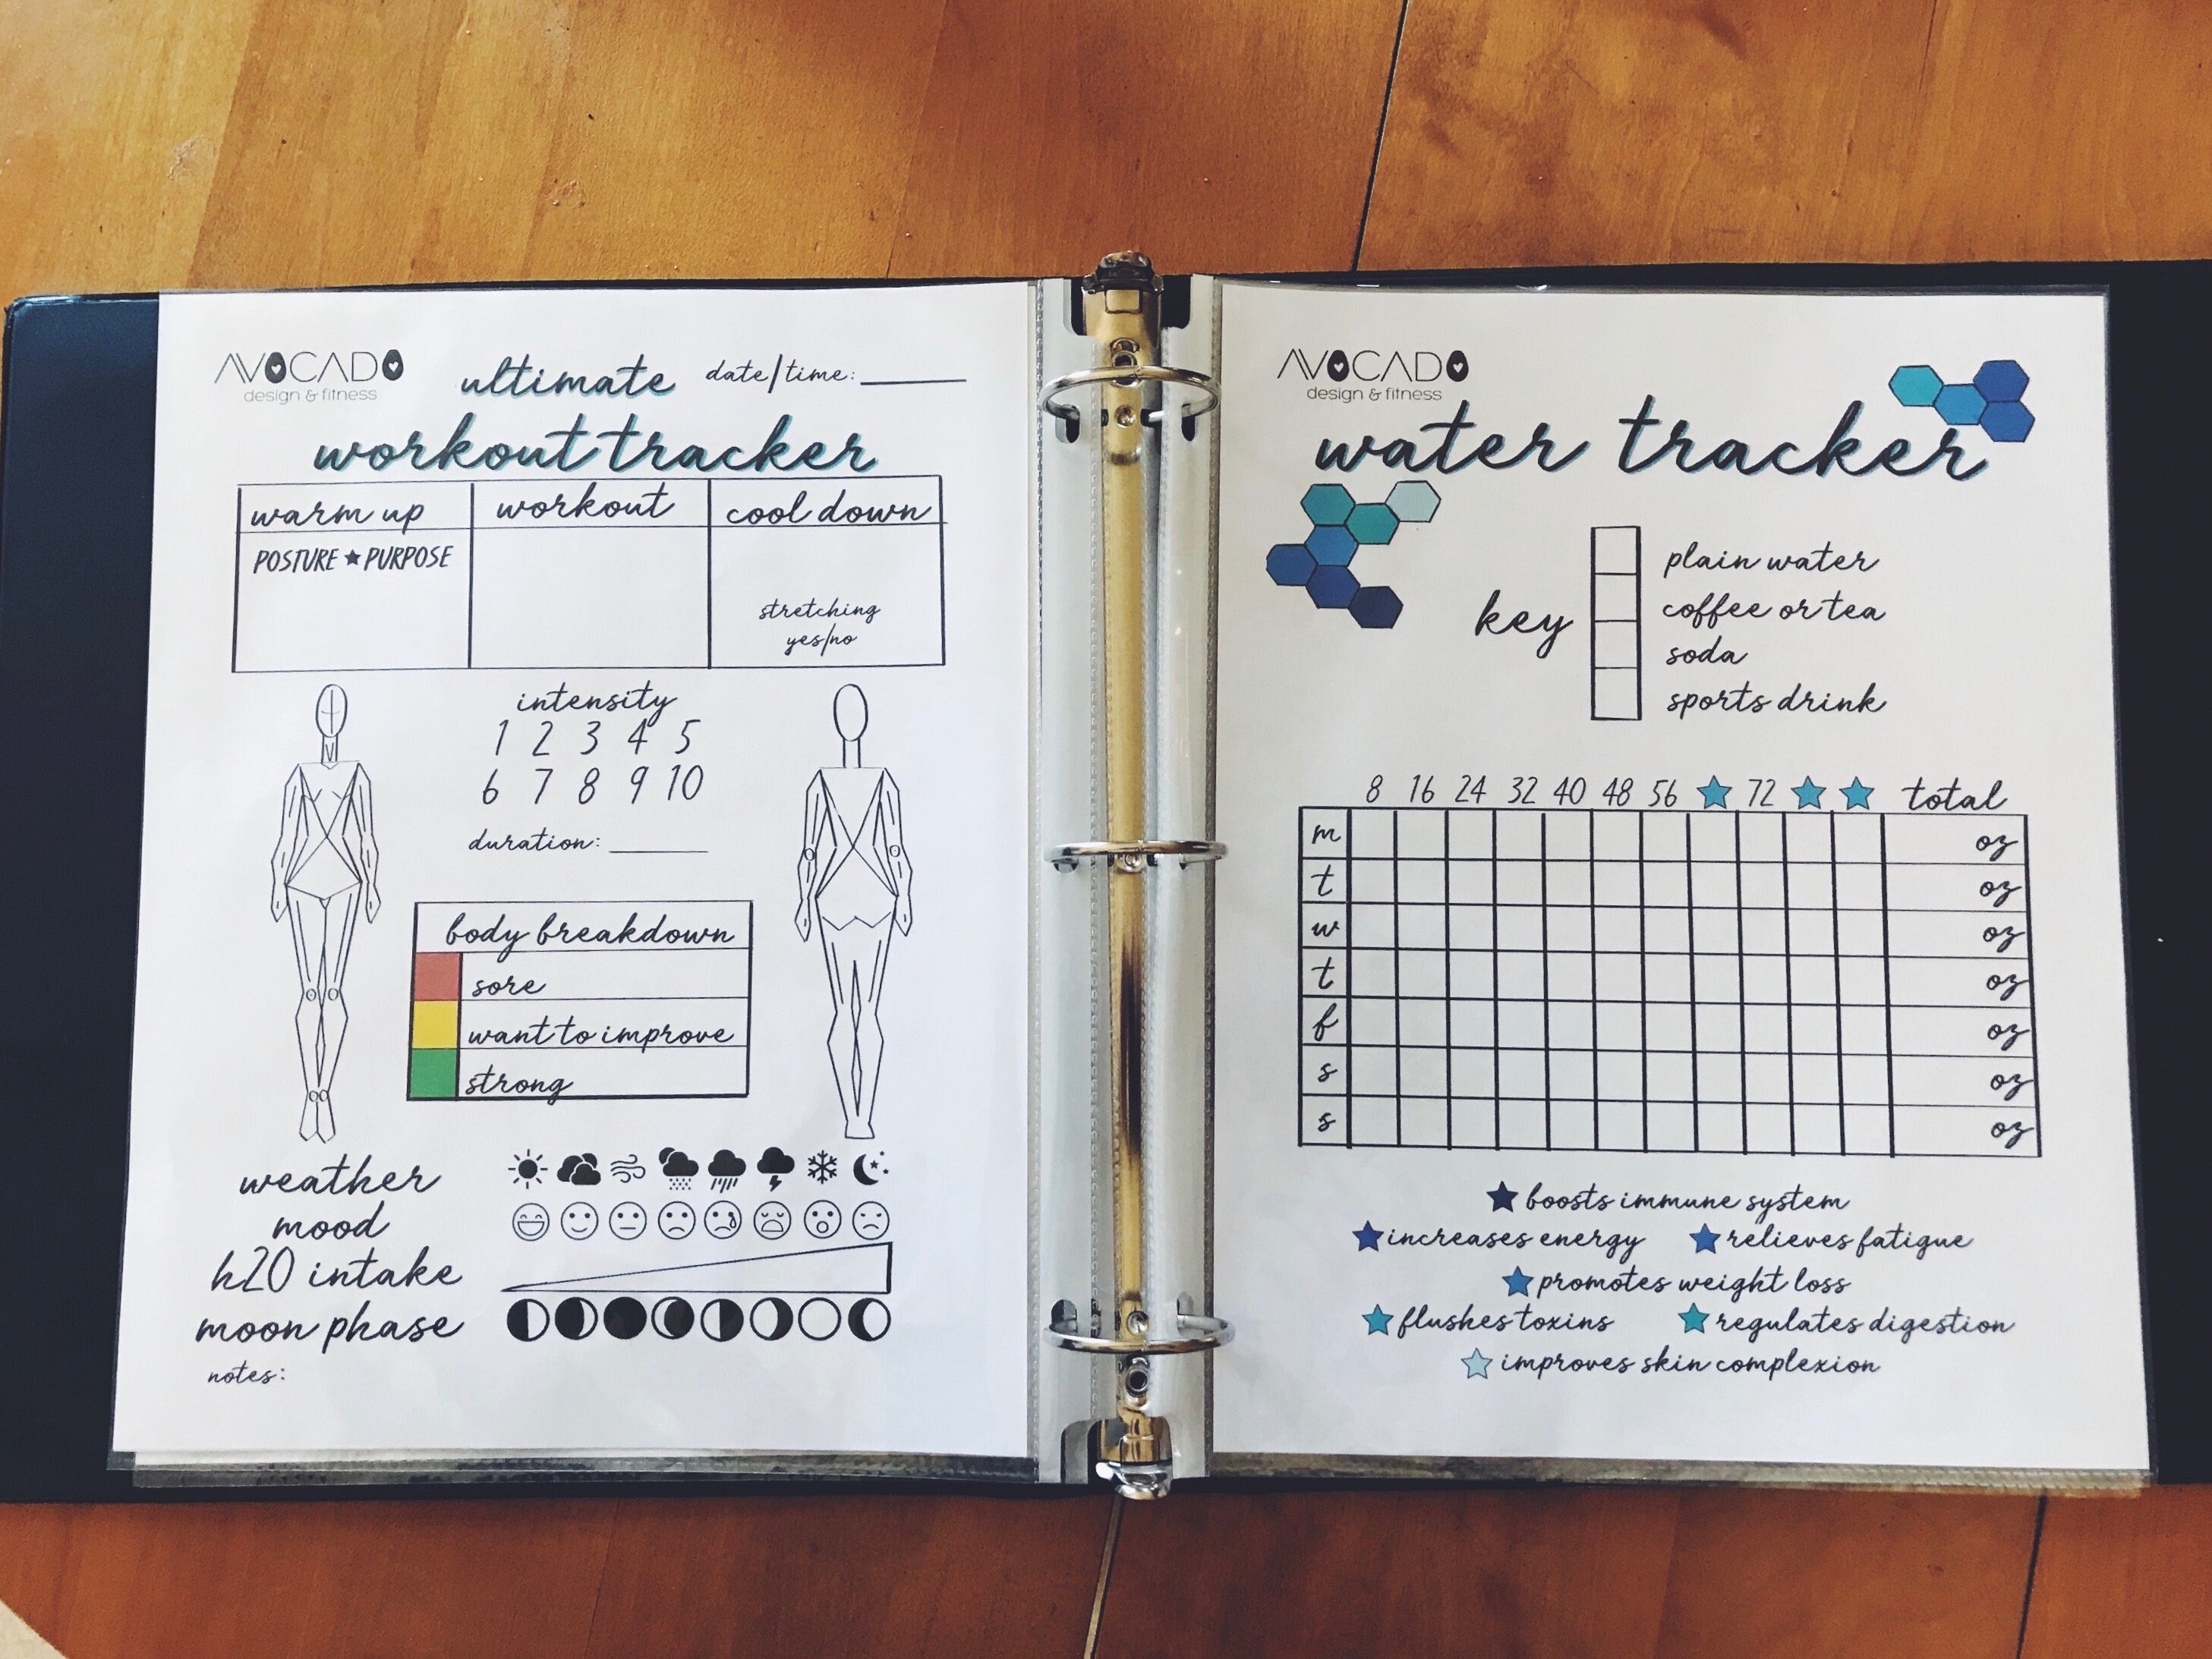 AVOCADO
design & fitness
ultimate
date/time:
workout tracker
warm up
workout
cool down
POSTURE ★ PURPOSE
stretching
yes/no
intensity
1 2 3 4 5
6 7 8 9 10
duration:
body breakdown
sore
want to improve
strong
weather
mood
h20 intake
moon phase
notes:
AVOCADO
design & fitness
water tracker
key
plain water
coffee or tea
soda
sports drink
8 16 24 32 40 48 56 ★ 72 ★ ★ total
m oz
t oz
w oz
t oz
f oz
s oz
s oz
★ boosts immune system
★ increases energy ★ relieves fatigue
★ promotes weight loss
★ flushes toxins ★ regulates digestion
★ improves skin complexion